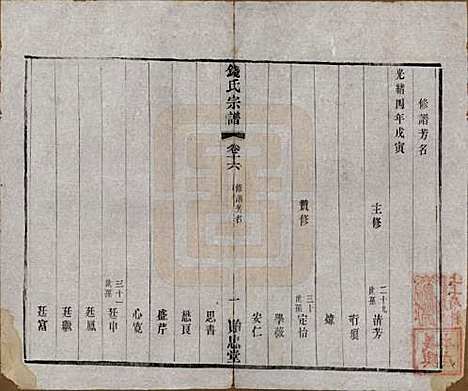 修譜芳名
光緒四年戊寅
主修 二十九世孫 清芳
有須
煒
贊修 三十世孫 定怡
學薇
安仁
錢氏宗譜 卷十六 修譜芳名 一 貽忠堂
思書
懋良
盛芹
心寬
三十一世孫 廷申
廷鳳
廷颺
廷富